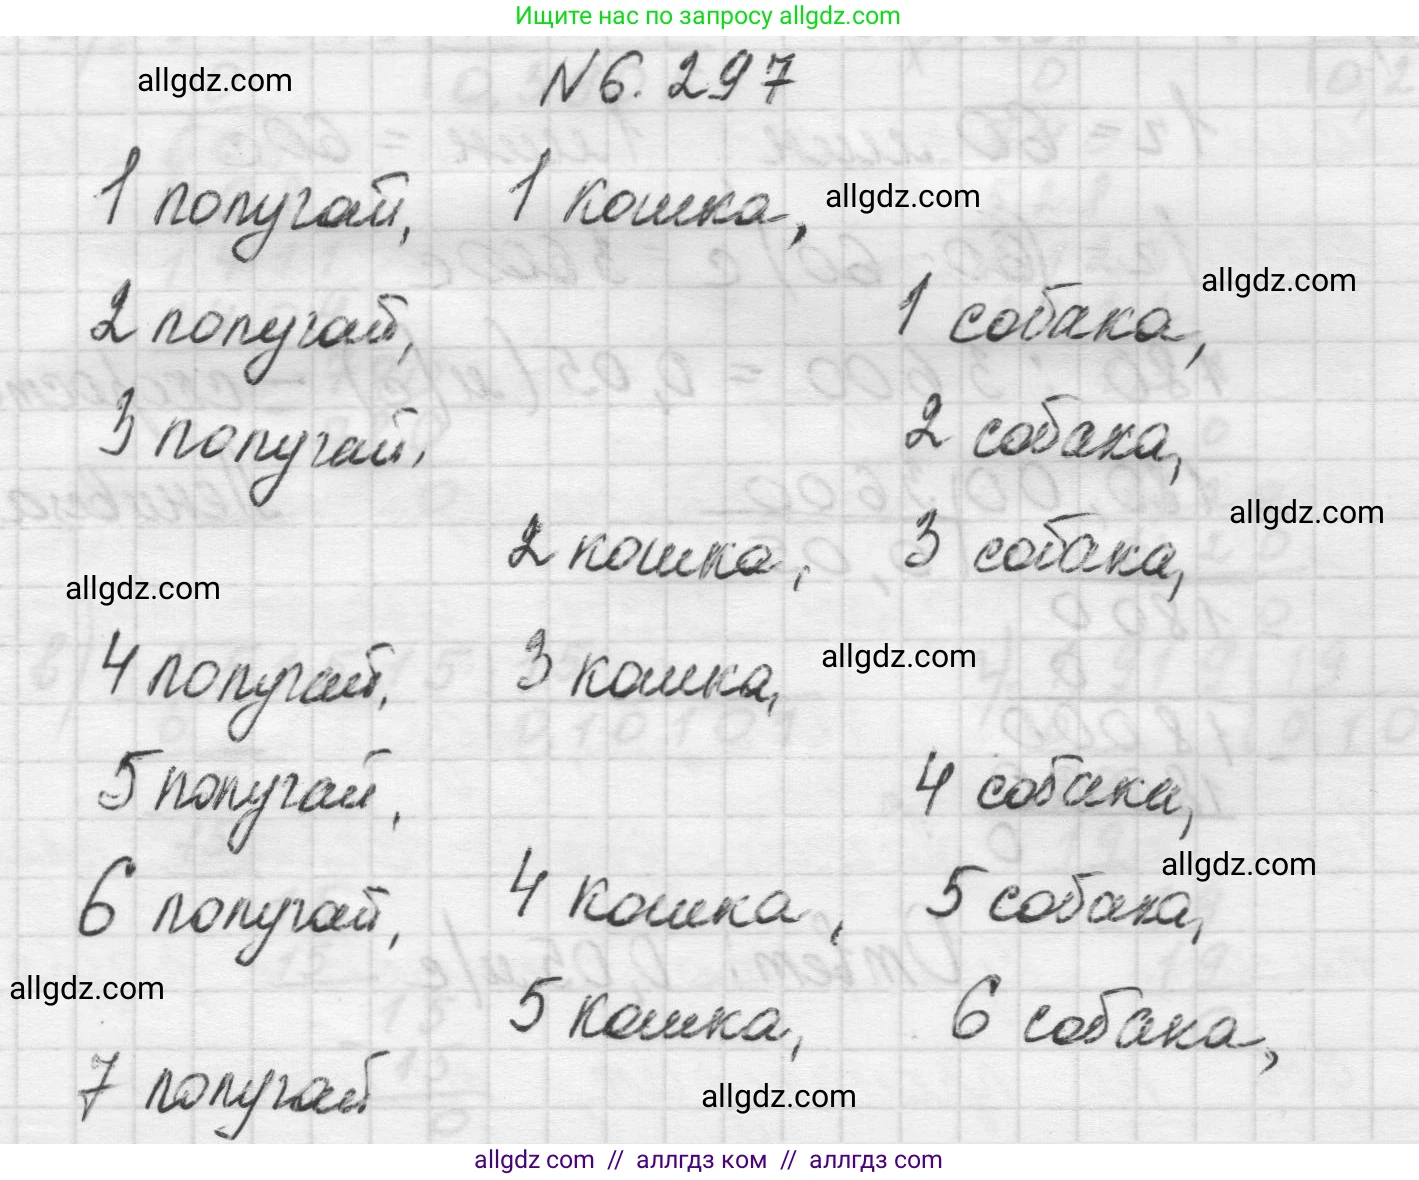 Ищите нас по запросу allgdz.com
allgdz.com
N 6. 297
1 попугай, 1 кошка, allgdz.com
allgdz.com
2 попугай, 1 собака,
3 попугай, 2 собака,
allgdz.com
2 кошка, 3 собака,
allgdz.com
4 попугай, 3 кошка, allgdz.com
5 попугай, 4 собака,
allgdz.com
6 попугай, 4 кошка, 5 собака,
allgdz.com
5 кошка, 6 собака,
7 попугай
allgdz.com
allgdz com // аллгдз ком // аллгдз com